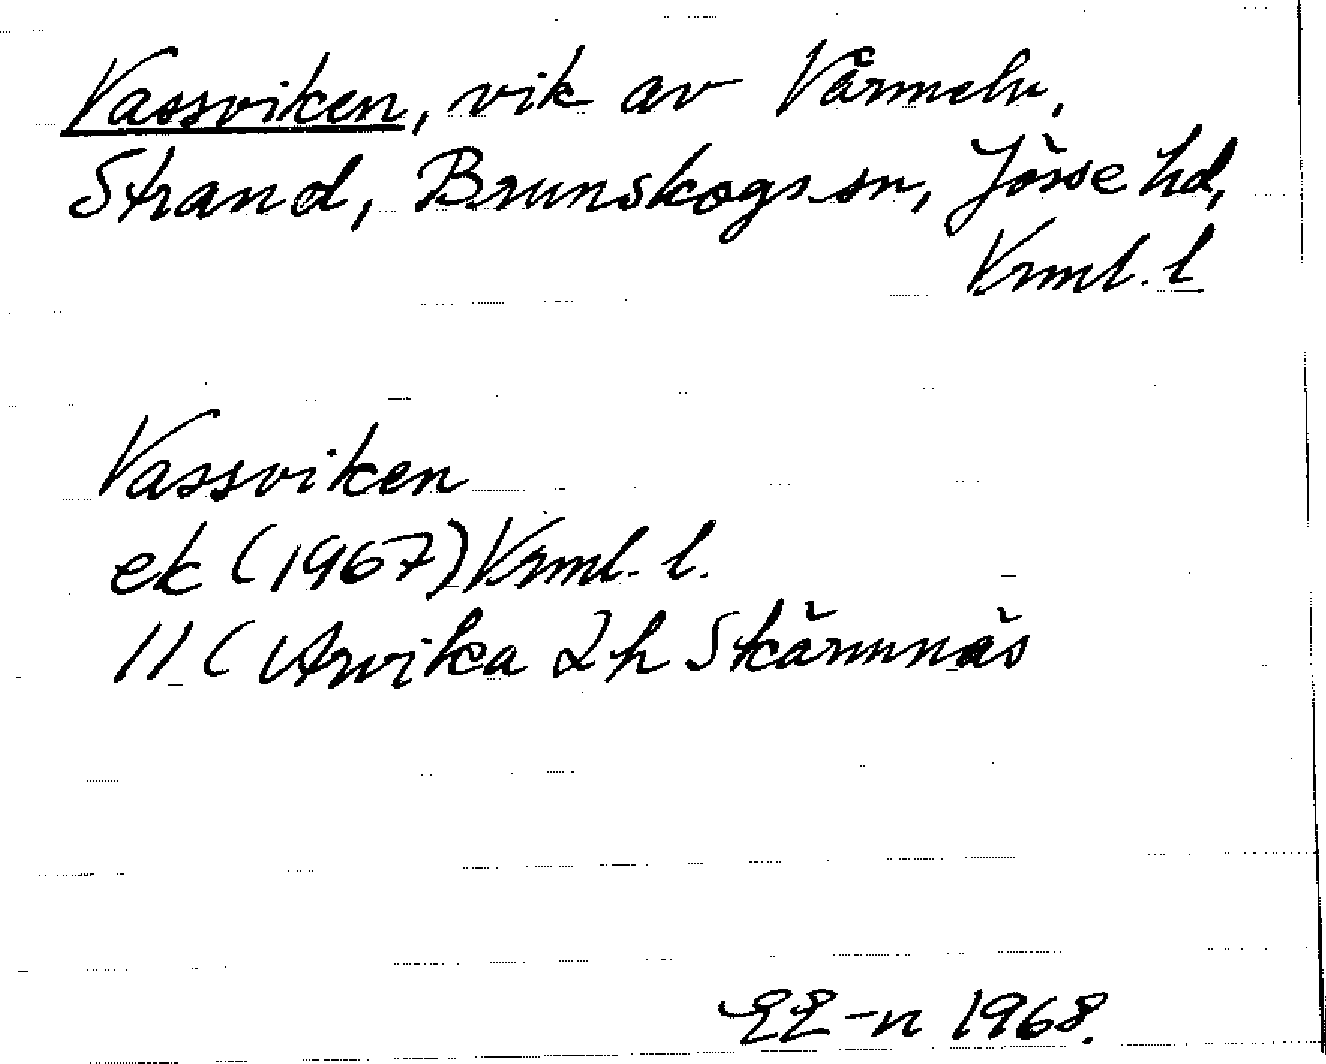 Vassviken, vik av Värmeln,
Strand, Brunskogs sn, Jösse hd,
Vrml. l
Vassviken
ek (1967) Vrml. l.
11C Arvika 2h Skärmnäs
EE-n 1968.